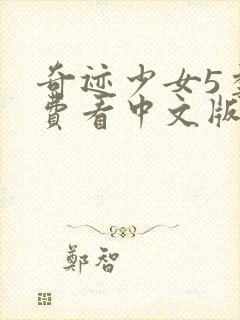 奇迹少女5季
費看中文版
鄭智